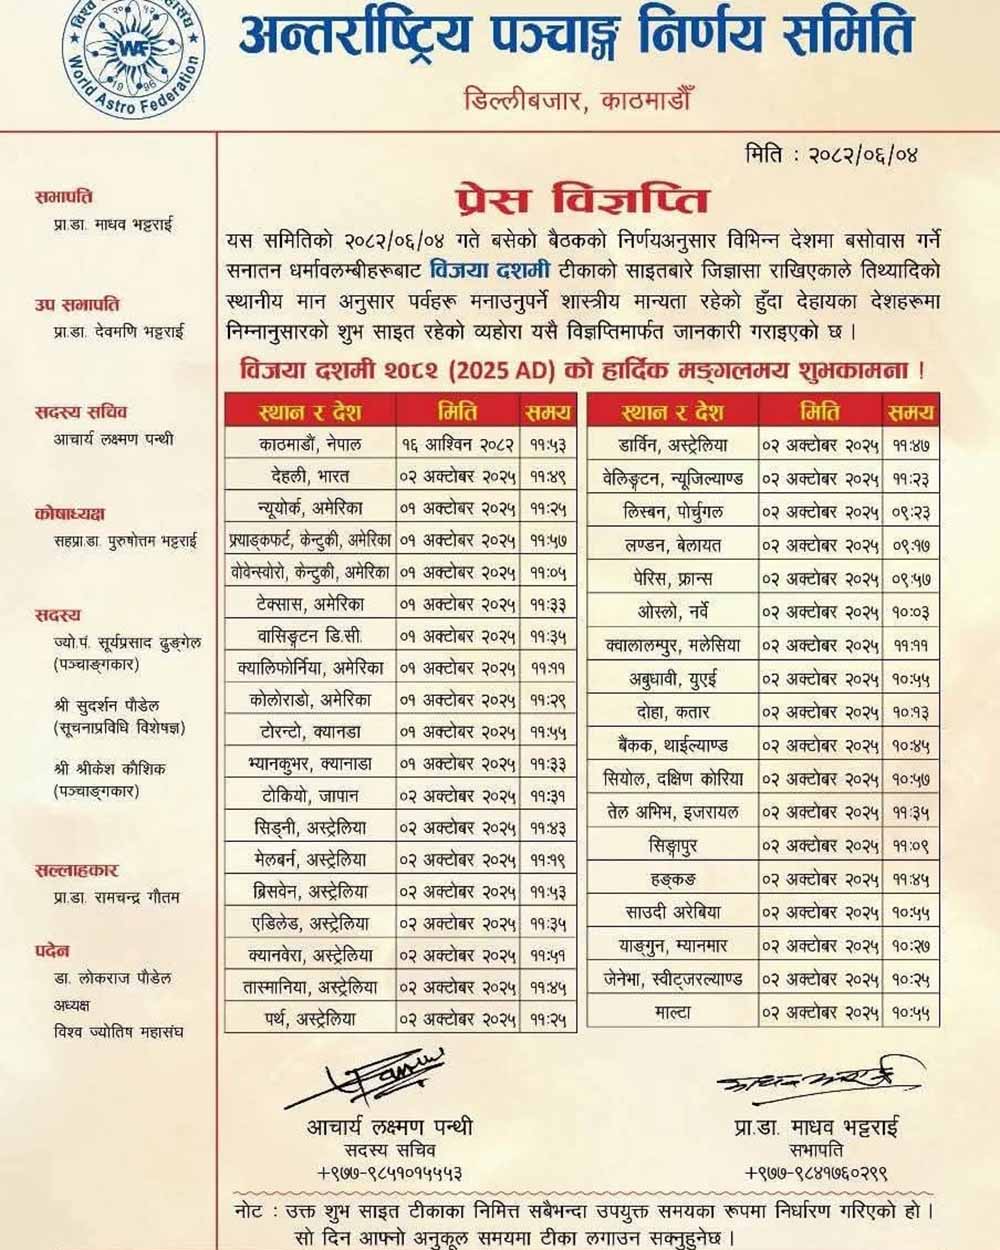 विश्व
महासंघ
२०५२
WAF
1996
World Astro Federation
अन्तर्राष्ट्रिय पञ्चाङ्ग निर्णय समिति
डिल्लीबजार, काठमाडौँ
मिति : २०८२/०६/०४
सभापति
प्रा.डा. माधव भट्टराई
उप सभापति
प्रा.डा. देवमणि भट्टराई
सदस्य सचिव
आचार्य लक्ष्मण पन्थी
कोषाध्यक्ष
सहप्रा.डा. पुरुषोत्तम भट्टराई
सदस्य
ज्यो.पं. सूर्यप्रसाद ढुङ्गेल
(पञ्चाङ्गकार)
श्री सुदर्शन पौडेल
(सूचनाप्रविधि विशेषज्ञ)
श्री श्रीकेश कौशिक
(पञ्चाङ्गकार)
सल्लाहकार
प्रा.डा. रामचन्द्र गौतम
पदेन
डा. लोकराज पौडेल
अध्यक्ष
विश्व ज्योतिष महासंघ
प्रेस विज्ञप्ति
यस समितिको २०८२/०६/०४ गते बसेको बैठकको निर्णयअनुसार विभिन्न देशमा बसोवास गर्ने
सनातन धर्मावलम्बीहरूबाट विजया दशमी टीकाको साइतबारे जिज्ञासा राखिएकाले तिथ्यादिको
स्थानीय मान अनुसार पर्वहरू मनाउनुपर्ने शास्त्रीय मान्यता रहेको हुँदा देहायका देशहरूमा
निम्नानुसारको शुभ साइत रहेको व्यहोरा यसै विज्ञप्तिमार्फत जानकारी गराइएको छ ।
विजया दशमी २०८२ (2025 AD) को हार्दिक मङ्गलमय शुभकामना !
स्थान र देश मिति समय
काठमाडौं, नेपाल १६ आश्विन २०८२ ११:५३
देहली, भारत ०२ अक्टोबर २०२५ ११:४९
न्यूयोर्क, अमेरिका ०१ अक्टोबर २०२५ ११:२५
फ्र्याङ्कफर्ट, केन्टुकी, अमेरिका ०१ अक्टोबर २०२५ ११:५७
वोवेन्स्वोरो, केन्टुकी, अमेरिका ०१ अक्टोबर २०२५ ११:०५
टेक्सास, अमेरिका ०१ अक्टोबर २०२५ ११:३३
वासिङ्टन डि.सी. ०१ अक्टोबर २०२५ ११:३५
क्यालिफोर्निया, अमेरिका ०१ अक्टोबर २०२५ ११:११
कोलोराडो, अमेरिका ०१ अक्टोबर २०२५ ११:२९
टोरन्टो, क्यानडा ०१ अक्टोबर २०२५ ११:५५
भ्यानकुभर, क्यानाडा ०१ अक्टोबर २०२५ ११:३३
टोकियो, जापान ०२ अक्टोबर २०२५ ११:३१
सिड्नी, अस्ट्रेलिया ०२ अक्टोबर २०२५ ११:४३
मेलबर्न, अस्ट्रेलिया ०२ अक्टोबर २०२५ ११:१९
ब्रिसवेन, अस्ट्रेलिया ०२ अक्टोबर २०२५ ११:५३
एडिलेड, अस्ट्रेलिया ०२ अक्टोबर २०२५ ११:३५
क्यानवेरा, अस्ट्रेलिया ०२ अक्टोबर २०२५ ११:५१
तास्मानिया, अस्ट्रेलिया ०२ अक्टोबर २०२५ ११:४५
पर्थ, अस्ट्रेलिया ०२ अक्टोबर २०२५ ११:२५
स्थान र देश मिति समय
डार्विन, अस्ट्रेलिया ०२ अक्टोबर २०२५ ११:४७
वेलिङ्टन, न्यूजिल्याण्ड ०२ अक्टोबर २०२५ ११:२३
लिस्बन, पोर्चुगल ०२ अक्टोबर २०२५ ०९:२३
लण्डन, बेलायत ०२ अक्टोबर २०२५ ०९:१७
पेरिस, फ्रान्स ०२ अक्टोबर २०२५ ०९:५७
ओस्लो, नर्वे ०२ अक्टोबर २०२५ १०:०३
क्वालालम्पुर, मलेसिया ०२ अक्टोबर २०२५ ११:११
अबुधावी, युएई ०२ अक्टोबर २०२५ १०:५५
दोहा, कतार ०२ अक्टोबर २०२५ १०:१३
बैंकक, थाईल्याण्ड ०२ अक्टोबर २०२५ १०:४५
सियोल, दक्षिण कोरिया ०२ अक्टोबर २०२५ १०:५७
तेल अभिभ, इजरायल ०२ अक्टोबर २०२५ ११:३५
सिङ्गापुर ०२ अक्टोबर २०२५ ११:०९
हङ्कङ ०२ अक्टोबर २०२५ ११:४५
साउदी अरेबिया ०२ अक्टोबर २०२५ १०:५५
याङ्गुन, म्यानमार ०२ अक्टोबर २०२५ १०:२७
जेनेभा, स्वीट्जरल्याण्ड ०२ अक्टोबर २०२५ १०:२५
माल्टा ०२ अक्टोबर २०२५ १०:५५
आचार्य लक्ष्मण पन्थी
सदस्य सचिव
+९७७-९८५१०१५५५३
प्रा.डा. माधव भट्टराई
सभापति
+९७७-९८४१७६०२९९
नोट : उक्त शुभ साइत टीकाका निमित्त सबैभन्दा उपयुक्त समयका रूपमा निर्धारण गरिएको हो ।
सो दिन आफ्नो अनुकूल समयमा टीका लगाउन सक्नुहुनेछ ।